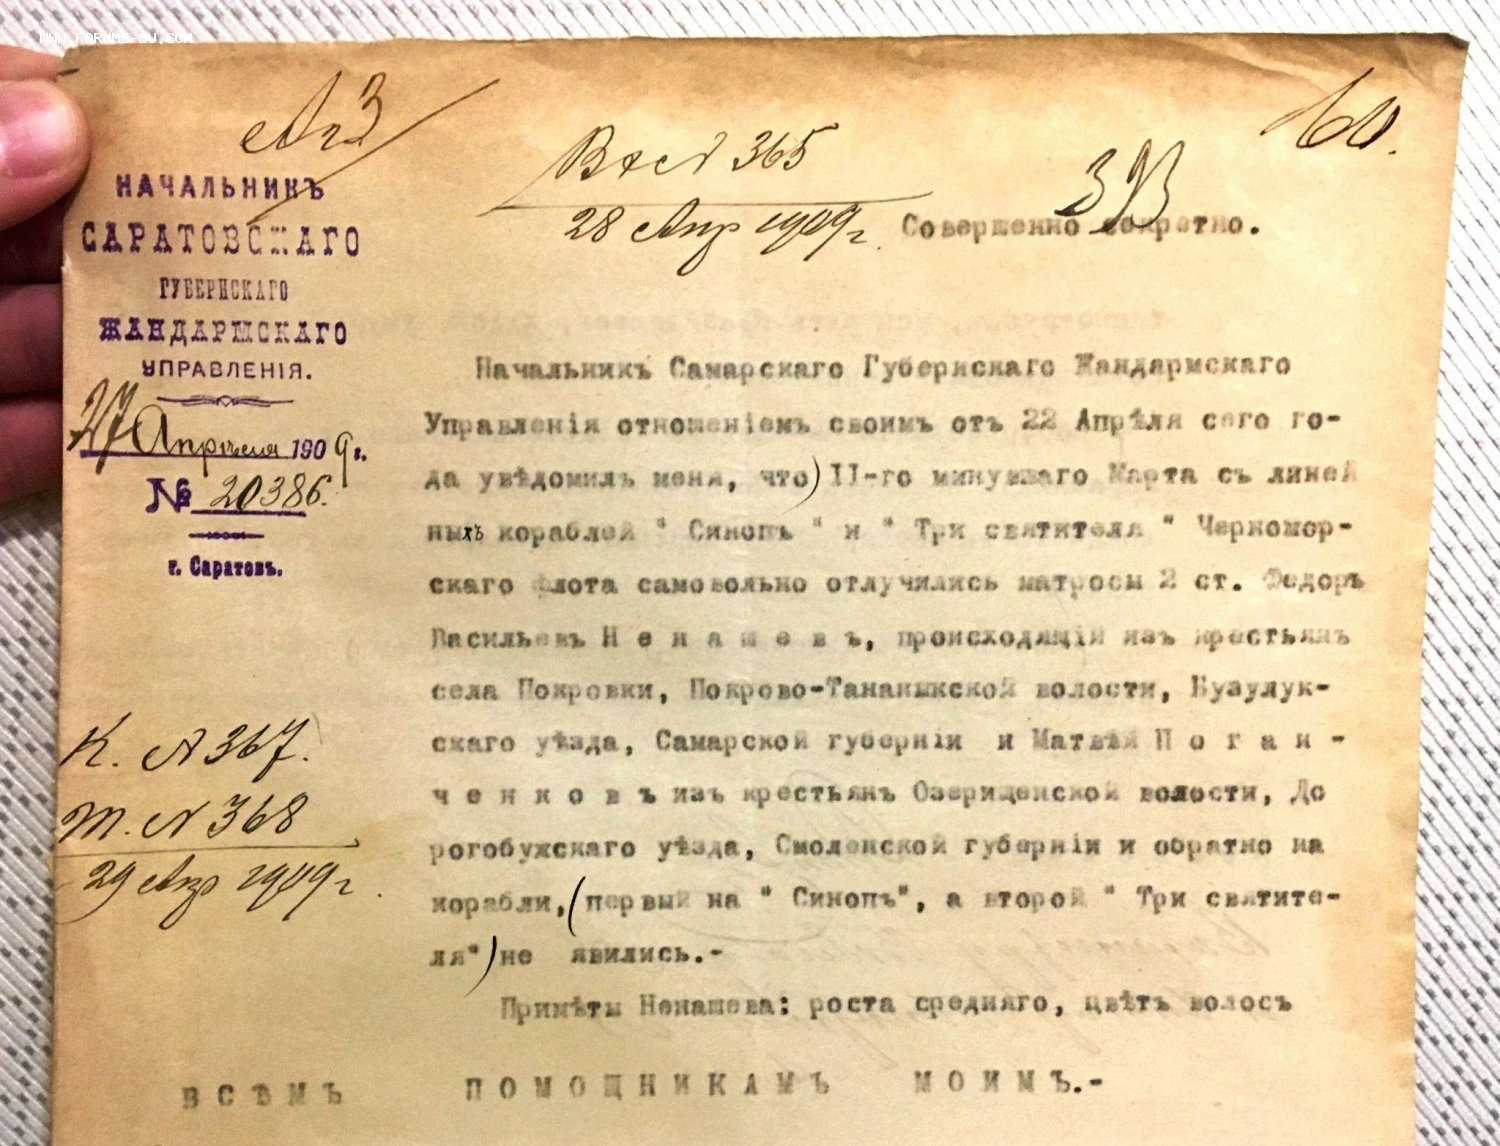 WWW.FORUMS-SU.COM
60.
Вх № 365
28 Апр 1909 г.
393
Совершенно секретно.
НАЧАЛЬНИКЪ
САРАТОВСКАГО
ГУБЕРНСКАГО
ЖАНДАРМСКАГО
УПРАВЛЕНІЯ.
27 Апреля 1909 г.
№ 20386.
г. Саратовъ.
К. № 367.
Т. № 368
29 Апр 1909 г.
Начальникъ Самарскаго Губернскаго Жандармскаго
Управленія отношеніемъ своимъ отъ 22 Апрѣля сего го-
да увѣдомилъ меня, что) II-го минувшаго Марта съ линей
ныхъ кораблей " Синопъ " и " Три святителя " Черномор-
скаго флота самовольно отлучились матросы 2 ст. Федоръ
Васильевъ Н е н а ш е в ъ, происходящій изъ крестьянъ
села Покровки, Покрово-Тананыкской волости, Бузулук-
скаго уѣзда, Самарской губерніи и Матвѣй П о г а н -
ч е н к о в ъ изъ крестьянъ Озерищенской волости, До
рогобужскаго уѣзда, Смоленской губерніи и обратно на
корабли, (первый на " Синопъ", а второй " Три святите-
ля") не явились.-
Примѣты Ненашева: роста средняго, цвѣтъ волосъ
В С Ѣ М Ъ П О М О Щ Н И К А М Ъ М О И М Ъ.-